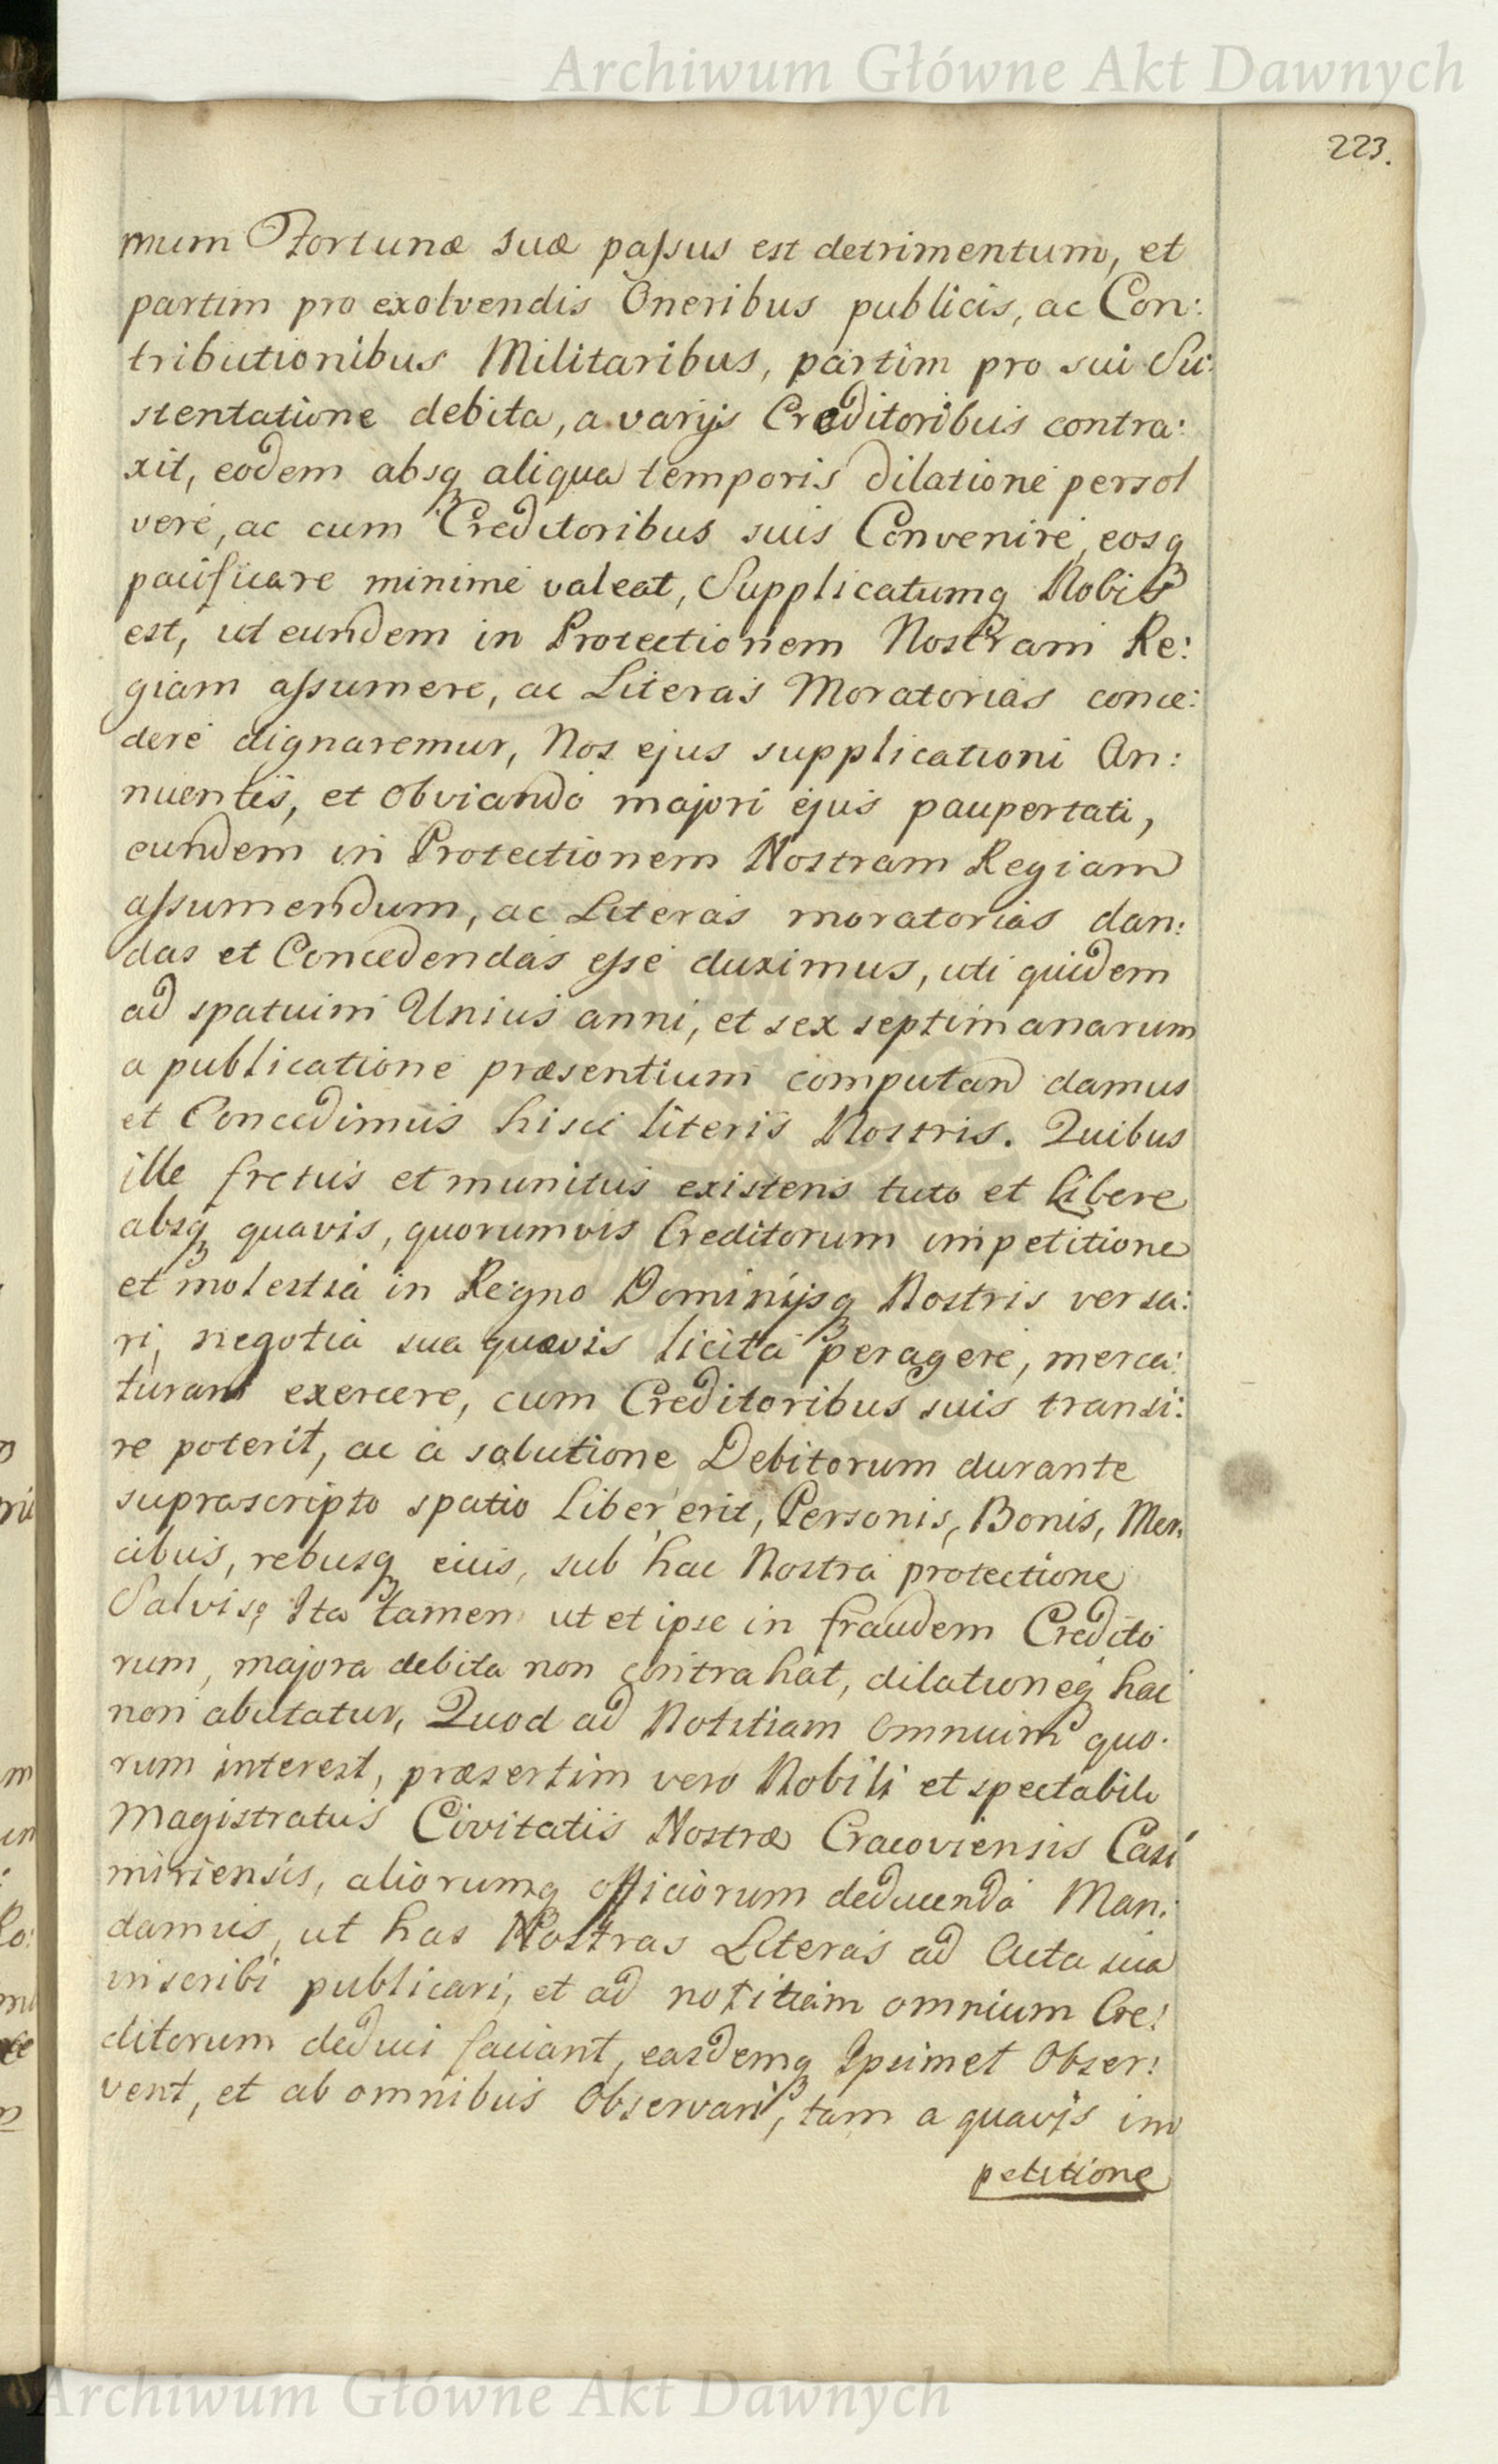 Archiwum Główne Akt Dawnych
223.
mum Fortunæ suæ passus est detrimentum, et
partim pro exolvendis Oneribus publicis, ac Con:
tributionibus Militaribus, partim pro sui Su:
stentatione debita, a varijs Creditoribus contra:
xit, eodem absq₃ aliqua temporis dilatione persol
vere, ac cum Creditoribus suis Convenire, eosq₃
pacificare minime valeat, Supplicatumq₃ Nobis
est, ut eundem in Protectionem Nostram Re:
giam assumere, ac Literas Moratorias conce:
dere dignaremur, Nos ejus supplicationi An:
nuentes, et obviando majori ejus paupertati,
eundem in Protectionem Nostram Regiam
assumendum, ac Literas moratorias dan:
das et Concedendas esse duximus, uti quidem
ad spatuim Unius anni, et sex septimanarum
a publicatione præsentium computan damus
et Concedimus hisce literis Nostris. Quibus
ille fretus et munitus existens tuto et libere
absq₃ quavis, quorumvis Creditorum impetitione
et molestia in Regno Dominijsq₃ Nostris versa:
ri, negotia sua quævis licita peragere, merca:
turam exercere, cum Creditoribus suis transi:
re poterit, ac a solutione Debitorum durante
suprascripto spatio liber erit, Personis, Bonis, Mer:
cibus, rebusq₃ eius, sub hac Nostra protectione
Salvis, Ita tamen ut et ipse in fraudem Credito
rum, majora debita non contrahat, dilationeq₃ hac
non abutatur, Quod ad Notitiam omnium quo:
rum interest, præsertim vero Nobili et spectabili
Magistratus Civitatis Nostræ Cracoviensis Casi
miriensis, aliorumq₃ officiorum deducendo Man:
damus, ut has Nostras Literas ad Acta sua
inscribi publicari, et ad notitiam omnium Cre:
ditorum deduci faciant, easdemq₃ Ipsimet Obser:
vent, et ab omnibus Observari, tam a quavis im
petitione
Archiwum Główne Akt Dawnych